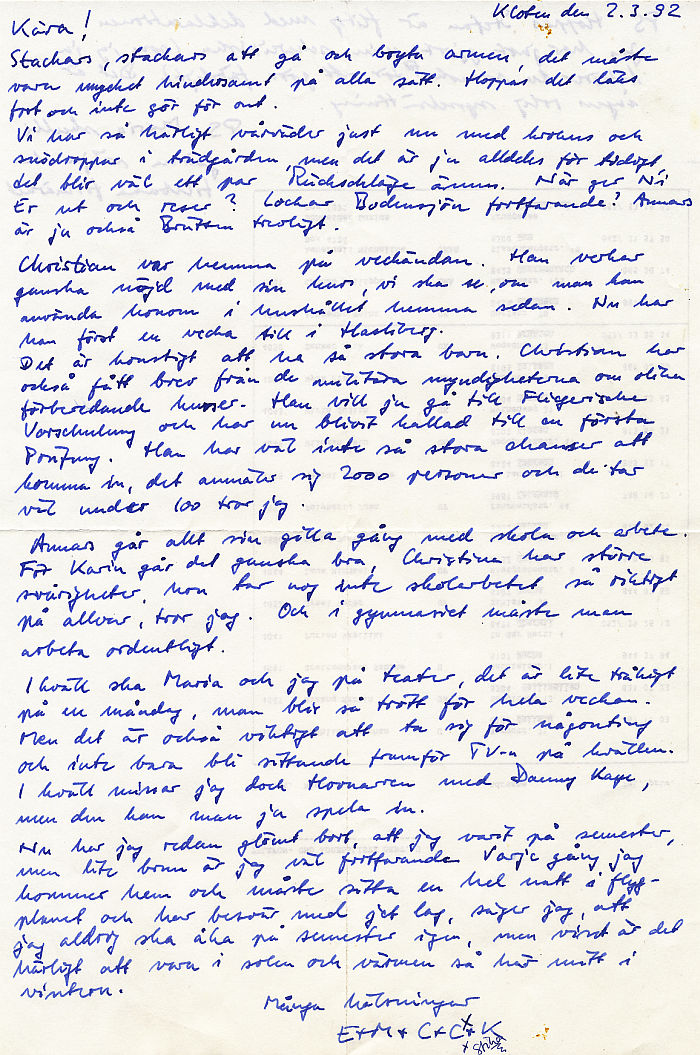 Kloten den 2.3.92
Kära!
Stackars, stackars att gå och bryta armen, det måste
vara mycket hindrosamt på alla sätt. Hoppas det läks
fort och inte gör för ont.
Vi har så härligt vårväder just nu med krokus och
snödroppar i trädgården, men det är ju alldeles för tidigt,
det blir väl ett par Rückschläge ännu. När ger Ni
Er ut och reser? Lockar Bodensjön fortfarande? Annars
är ju också Brütsen trevligt.
Christian var hemma på veckändan. Han verkar
ganska nöjd med sin kurs, vi ska se om man kan
använda honom i hushållet hemma sedan. Nu har
han först en vecka till i Hasliberg.
Det är konstigt att ha så stora barn. Christian har
också fått brev från de militära myndigheterna om olika
förberedande kurser. Han vill ju gå till Fliegerische
Vorschulung och har nu blivit kallad till en första
Prüfung. Han har väl inte så stora chanser att
komma in, det anmäler sig 2000 personer och de tar
väl under 100 tror jag.
Annars går allt sin gilla gång med skola och arbete.
För Karin går det ganska bra, Christina har större
svårigheter, hon tar nog inte skolarbetet så riktigt
på allvar, tror jag. Och i gymnasiet måste man
arbeta ordentligt.
I kväll ska Maria och jag på teater, det är lite tråkigt
på en måndag, man blir så trött för hela veckan.
Men det är också viktigt att ta sig för någonting
och inte bara bli sittande framför TV-n på kvällen.
I kväll missar jag doch Hovnarren med Danny Kaye,
men den kan man ju spela in.
Nu har jag redan glömt bort, att jag varit på semester,
men lite brun är jag väl fortfarande. Varje gång jag
kommer hem och måste sitta en hel natt i flyg-
planet och har besvär med jet lag, säger jag, att
jag aldrig ska åka på semester igen, men visst är det
härligt att vara i solen och värmen så här mitt i
vintern.
Många hälsningar
E+M+ C+C+K